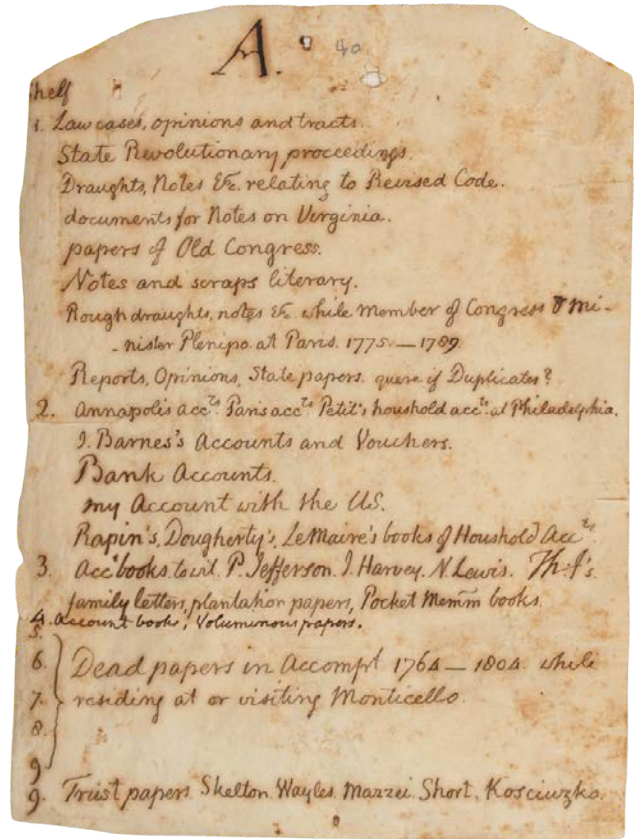 A. 40
Shelf
1. Law cases, opinions and tracts.
State Revolutionary proceedings.
Draughts, Notes &c. relating to Revised Code.
documents for Notes on Virginia.
papers of Old Congress.
Notes and scraps literary.
Rough draughts, notes &c. while Member of Congress & Mi-
-nister Plenipo. at Paris. 1775.—1789
Reports, Opinions, State papers. quere if Duplicates?
2. Annapolis accts. Paris accts. Petit's houshold accts. at Philadelphia.
J. Barnes's Accounts and Vouchers.
Bank Accounts.
my Account with the US.
Rapin's, Dougherty's, LeMaire's books of Houshold Accts.
3. Acct books, to wit. P. Jefferson. J. Harvey. N. Lewis. Th. J's.
family letters, plantation papers, Pocket Memm books.
4. Account books, Voluminous papers.
5.
6. Dead papers in Accompt 1764—1804. while
7. residing at or visiting Monticello.
8.
9
9. Trust papers. Skelton. Wayles. Mazzei. Short. Kosciuzko.